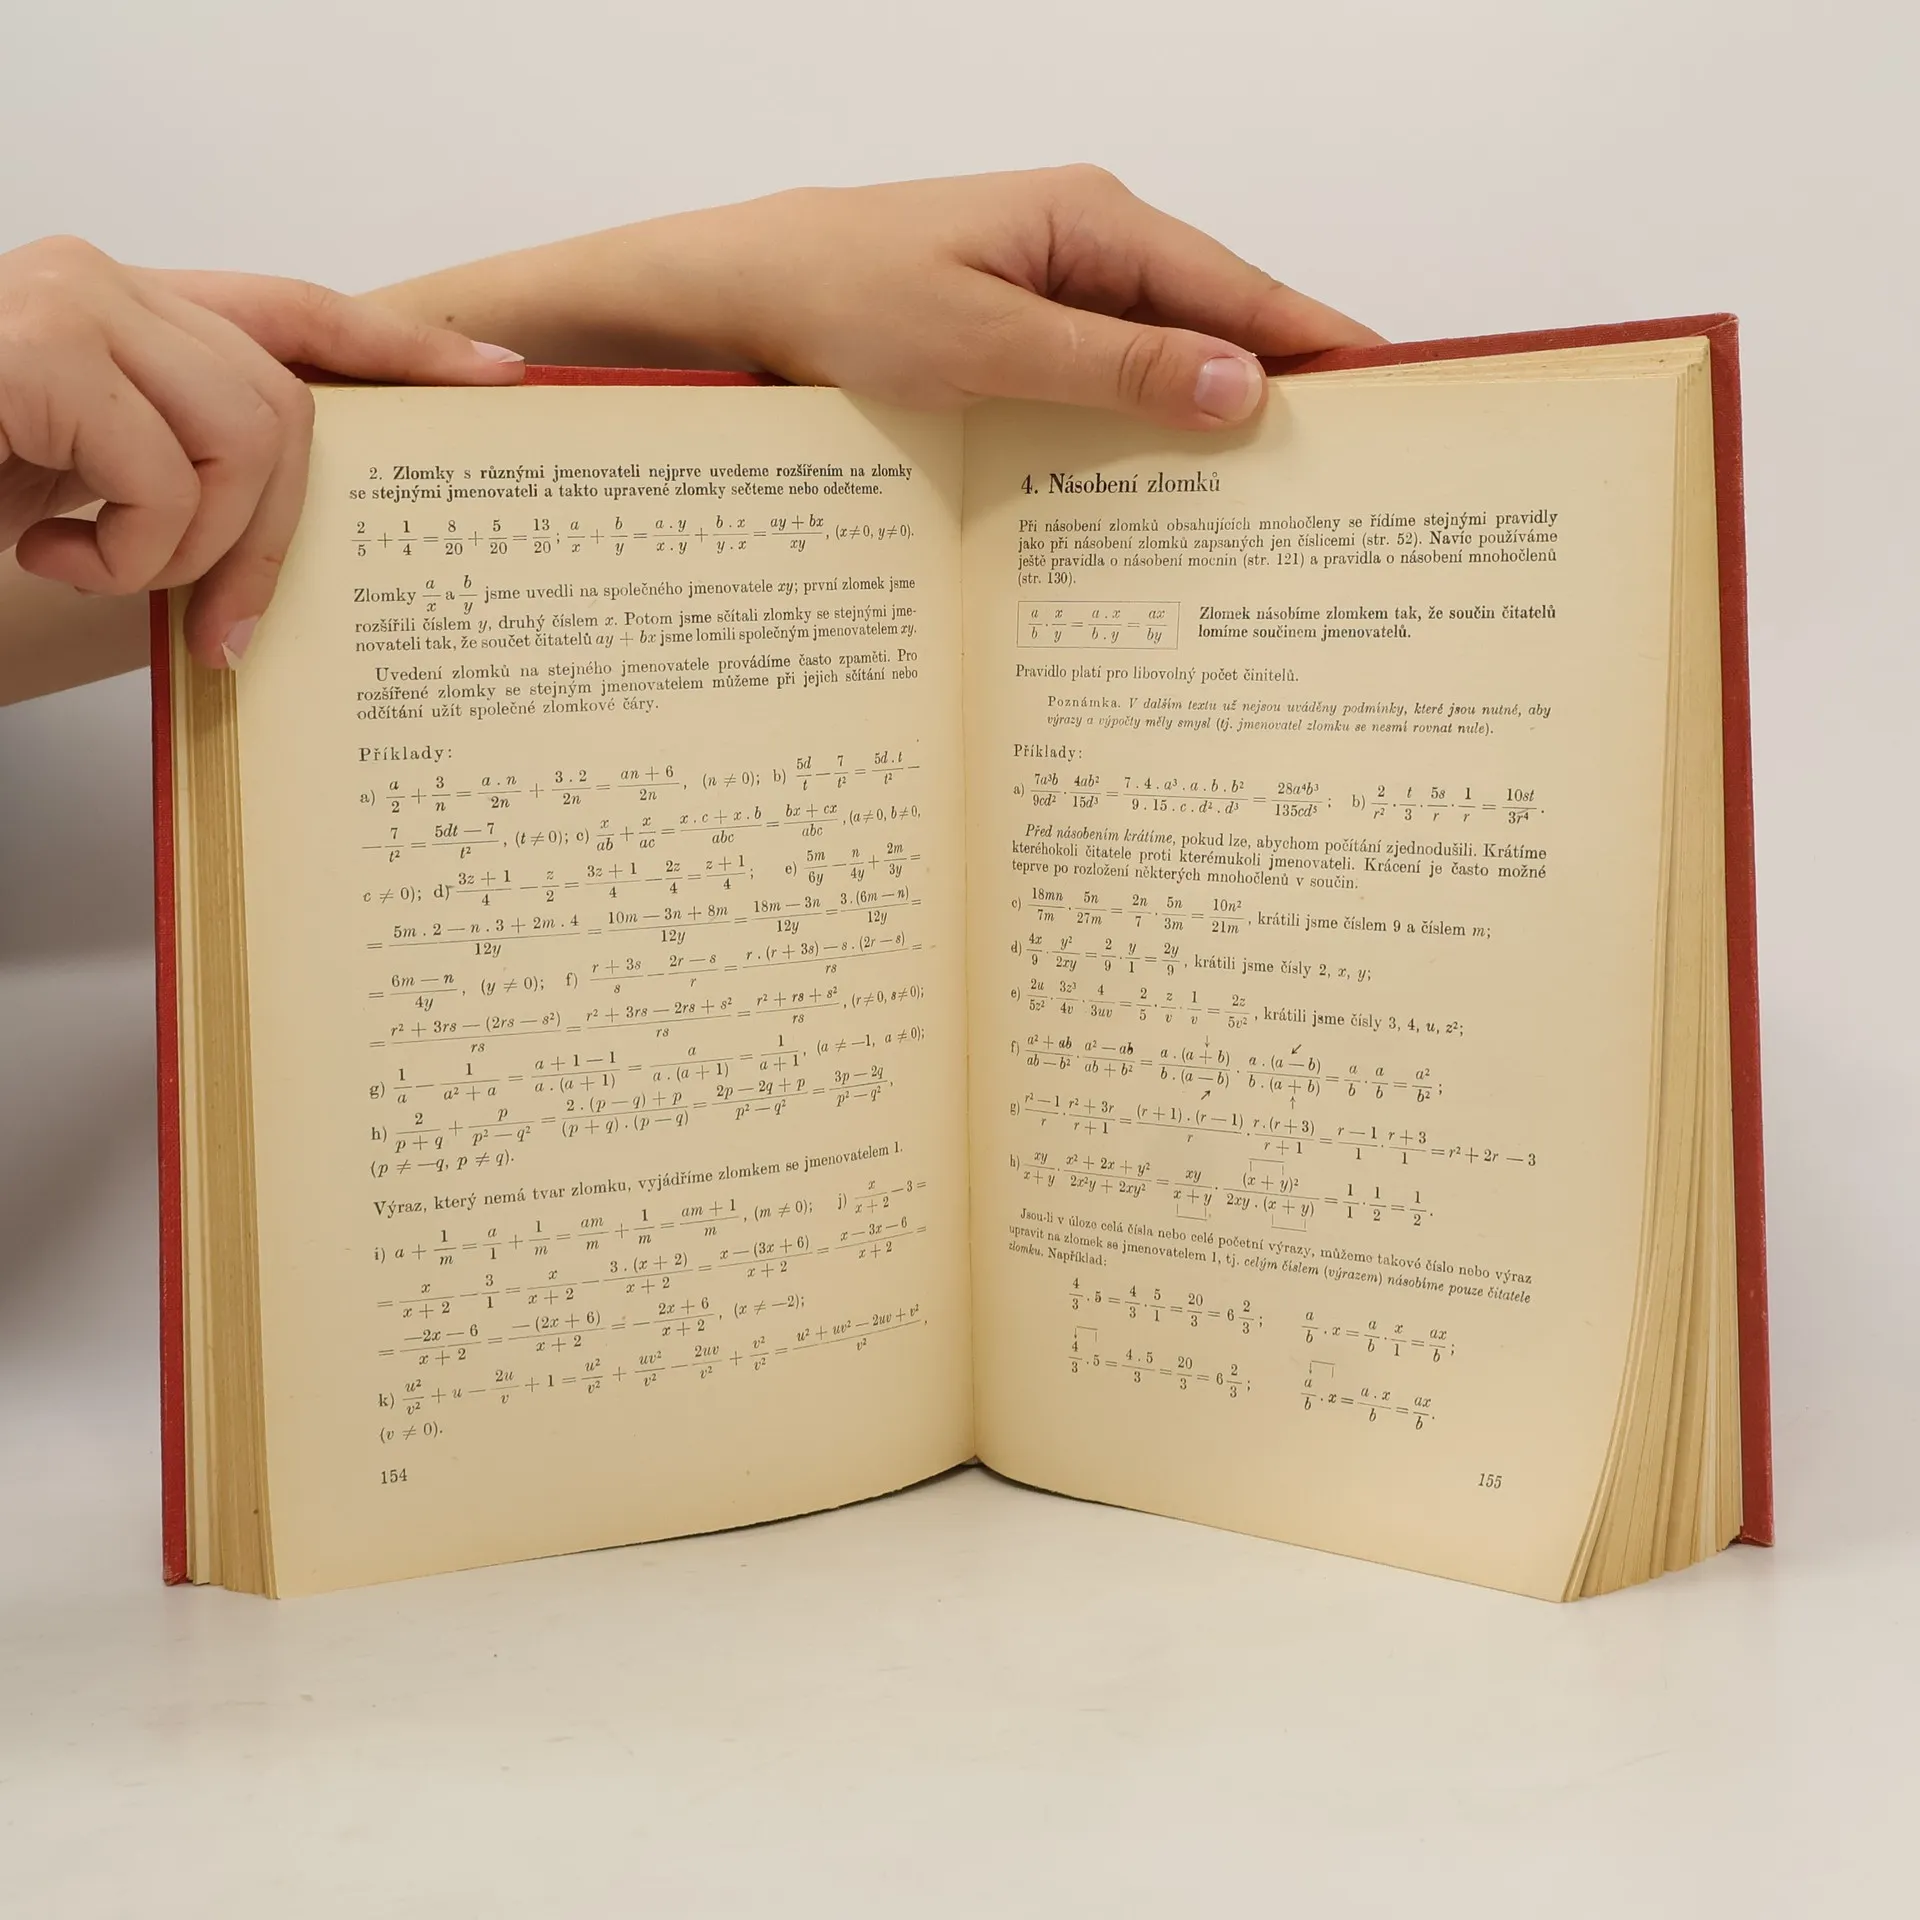 2. Zlomky s různými jmenovateli nejprve uvedeme rozšířením na zlomky
se stejnými jmenovateli a takto upravené zlomky sečteme nebo odečteme.
2/5 + 1/4 = 8/20 + 5/20 = 13/20; a/x + b/y = a . y/x . y + b . x/y . x = ay + bx/xy, (x ≠ 0, y ≠ 0).
Zlomky a/x a b/y jsme uvedli na společného jmenovatele xy; první zlomek jsme
rozšířili číslem y, druhý číslem x. Potom jsme sčítali zlomky se stejnými jme-
novateli tak, že součet čitatelů ay + bx jsme lomili společným jmenovatelem xy.
Uvedení zlomků na stejného jmenovatele provádíme často zpaměti. Pro
rozšířené zlomky se stejným jmenovatelem můžeme při jejich sčítání nebo
odčítání užít společné zlomkové čáry.
Příklady:
a) a/2 + 3/n = a . n/2n + 3 . 2/2n = an + 6/2n, (n ≠ 0); b) 5d/t − 7/t² = 5d . t/t² −
− 7/t² = 5dt − 7/t², (t ≠ 0); c) x/ab + x/ac = x . c + x . b/abc = bx + cx/abc, (a ≠ 0, b ≠ 0,
c ≠ 0); d) 3z + 1/4 − z/2 = 3z + 1/4 − 2z/4 = z + 1/4; e) 5m/6y − n/4y + 2m/3y =
= 5m . 2 − n . 3 + 2m . 4/12y = 10m − 3n + 8m/12y = 18m − 3n/12y = 3 . (6m − n)/12y =
= 6m − n/4y, (y ≠ 0); f) r + 3s/s − 2r − s/r = r . (r + 3s) − s . (2r − s)/rs =
= r² + 3rs − (2rs − s²)/rs = r² + 3rs − 2rs + s²/rs = r² + rs + s²/rs, (r ≠ 0, s ≠ 0);
g) 1/a − 1/a² + a = a + 1 − 1/a . (a + 1) = a/a . (a + 1) = 1/a + 1, (a ≠ −1, a ≠ 0);
h) 2/p + q + p/p² − q² = 2 . (p − q) + p/(p + q) . (p − q) = 2p − 2q + p/p² − q² = 3p − 2q/p² − q²,
(p ≠ −q, p ≠ q).
Výraz, který nemá tvar zlomku, vyjádříme zlomkem se jmenovatelem 1.
i) a + 1/m = a/1 + 1/m = am/m + 1/m = am + 1/m, (m ≠ 0); j) x/x + 2 − 3 =
= x/x + 2 − 3/1 = x/x + 2 − 3 . (x + 2)/x + 2 = x − (3x + 6)/x + 2 = x − 3x − 6/x + 2 =
= −2x − 6/x + 2 = −(2x + 6)/x + 2 = − 2x + 6/x + 2, (x ≠ −2);
k) u²/v² + u − 2u/v + 1 = u²/v² + uv²/v² − 2uv/v² + v²/v² = u² + uv² − 2uv + v²/v²,
(v ≠ 0).
154
4. Násobení zlomků
Při násobení zlomků obsahujících mnohočleny se řídíme stejnými pravidly
jako při násobení zlomků zapsaných jen číslicemi (str. 52). Navíc používáme
ještě pravidla o násobení mocnin (str. 121) a pravidla o násobení mnohočlenů
(str. 130).
a/b . x/y = a . x/b . y = ax/by
Zlomek násobíme zlomkem tak, že součin čitatelů
lomíme součinem jmenovatelů.
Pravidlo platí pro libovolný počet činitelů.
Poznámka. V dalším textu už nejsou uváděny podmínky, které jsou nutné, aby
výrazy a výpočty měly smysl (tj. jmenovatel zlomku se nesmí rovnat nule).
Příklady:
a) 7a³b/9cd² . 4ab²/15d³ = 7 . 4 . a³ . a . b . b²/9 . 15 . c . d² . d³ = 28a⁴b³/135cd⁵; b) 2/r² . t/3 . 5s/r . 1/r = 10st/3r⁴.
Před násobením krátíme, pokud lze, abychom počítání zjednodušili. Krátíme
kteréhokoli čitatele proti kterémukoli jmenovateli. Krácení je často možné
teprve po rozložení některých mnohočlenů v součin.
c) 18mn/7m . 5n/27m = 2n/7 . 5n/3m = 10n²/21m, krátili jsme číslem 9 a číslem m;
d) 4x/9 . y²/2xy = 2/9 . y/1 = 2y/9, krátili jsme čísly 2, x, y;
e) 2u/5z² . 3z³/4v . 4/3uv = 2/5 . z/v . 1/v = 2z/5v², krátili jsme čísly 3, 4, u, z²;
f) a² + ab/ab − b² . a² − ab/ab + b² = a . (a + b)/b . (a − b) . a . (a − b)/b . (a + b) = a/b . a/b = a²/b²;
g) r² − 1/r . r² + 3r/r + 1 = (r + 1) . (r − 1)/r . r . (r + 3)/r + 1 = r − 1/1 . r + 3/1 = r² + 2r − 3
h) xy/x + y . x² + 2x + y²/2x²y + 2xy² = xy/x + y . (x + y)²/2xy . (x + y) = 1/1 . 1/2 = 1/2.
Jsou-li v úloze celá čísla nebo celé početní výrazy, můžeme takové číslo nebo výraz
upravit na zlomek se jmenovatelem 1, tj. celým číslem (výrazem) násobíme pouze čitatele
zlomku. Například:
4/3 . 5 = 4/3 . 5/1 = 20/3 = 6 2/3; a/b . x = a/b . x/1 = ax/b;
4/3 . 5 = 4 . 5/3 = 20/3 = 6 2/3; a/b . x = a . x/b = ax/b.
155